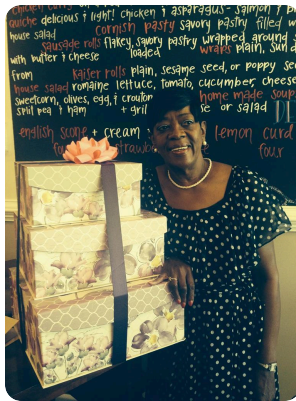 chicken curry
quiche delicious + light! chicken + asparagus - salmon +
house salad cornish pasty savory pastry filled w
sausage rolls flakey, savory pastry wrapped around s
with butter + cheese loaded wraps plain, sun d
from kaiser rolls plain, sesame seed, or poppy se
house salad romaine lettuce, tomato, cucumber cheese
sweetcorn, olives, egg, + crouton home made soups
split pea + ham + gril se or salad
DE
english scone + cream lemon curd
four strawb four